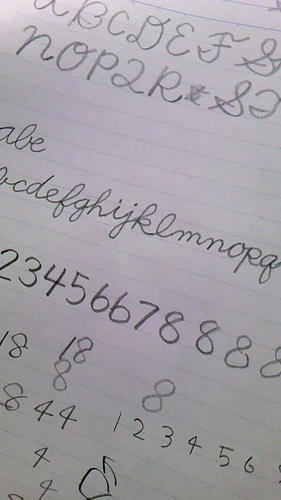 A B C D E F G
N O P Q R S T
abc
bcdefghijklmnopq
2 3 4 5 6 6 7 8 8 8 8
18 18
8 8
8 4 4 1 2 3 4 5 6
4
4